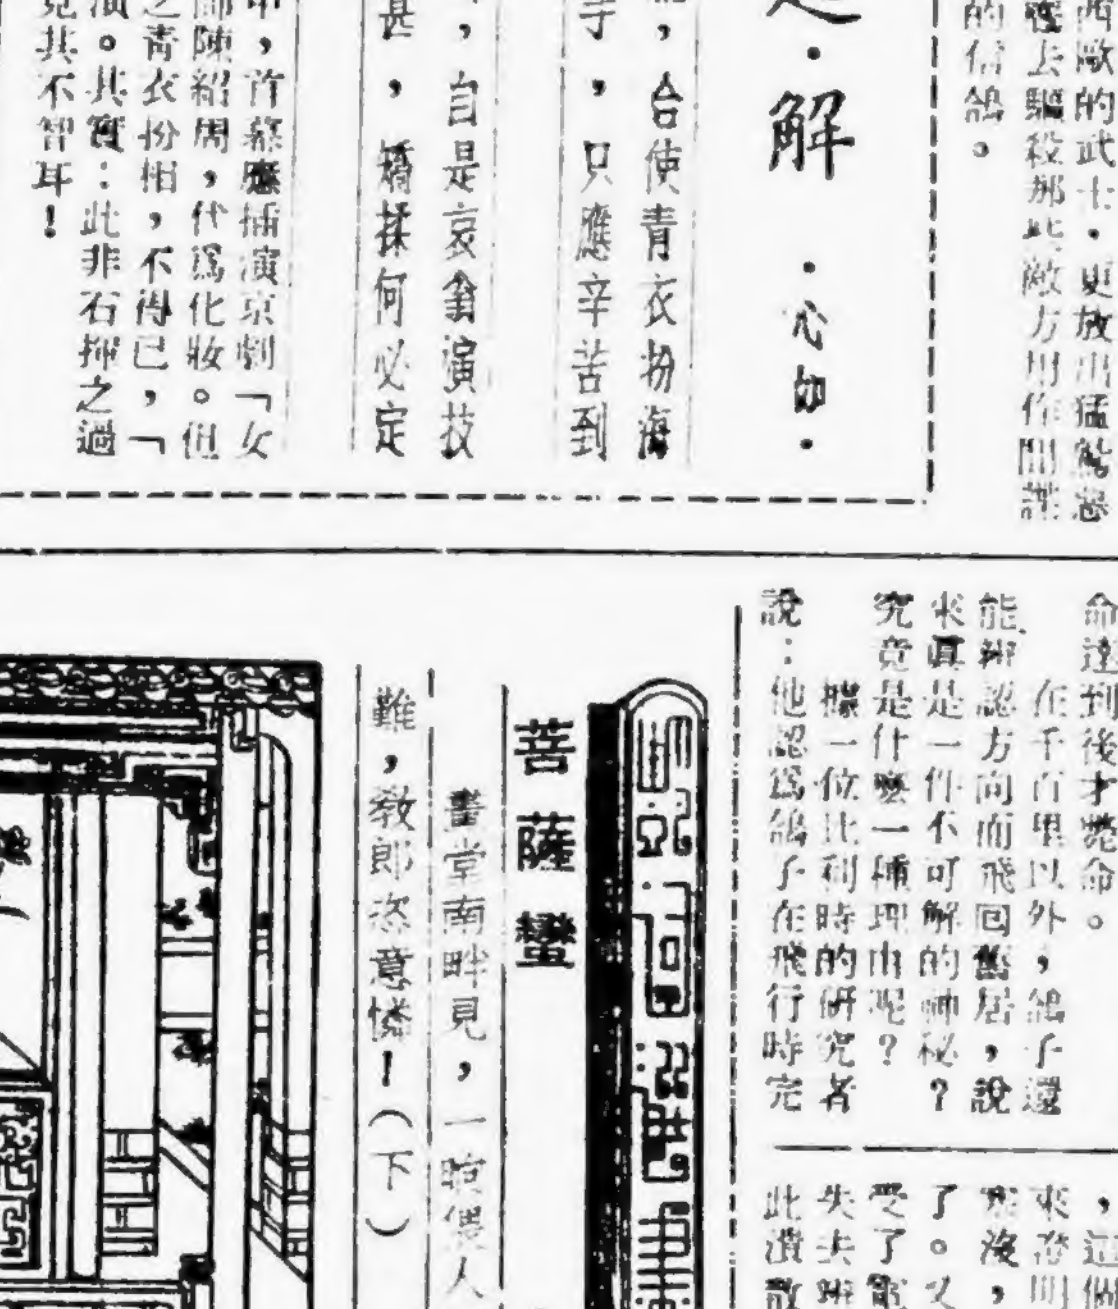 西歐的武士,更放出猛鷲惡
去驅殺那些敵方用作間諜
的信鴿。
解
·心如·
,合使青衣扮海
,只應辛苦到
,自是哀翁演技
甚,矯揉何必定
,首幕應插演京劇「女
師陳紹周,代爲化妝。但
之青衣扮相,不得已,「
演。其實:此非石揮之過
見其不智耳!
命達到後才斃命。
在千百里以外,鴿子還
能辨認方向而飛回舊居,說
來眞是一件不可解的神秘?
究竟是什麼一種理由呢?
據一位比利時的研究者
說:他認爲鴿子在飛行時完
,這個
了。又
受了電
失去辨
此潰散
菩薩蠻
畫堂南畔見,一晌偎人
難,敎郎恣意憐!(下)